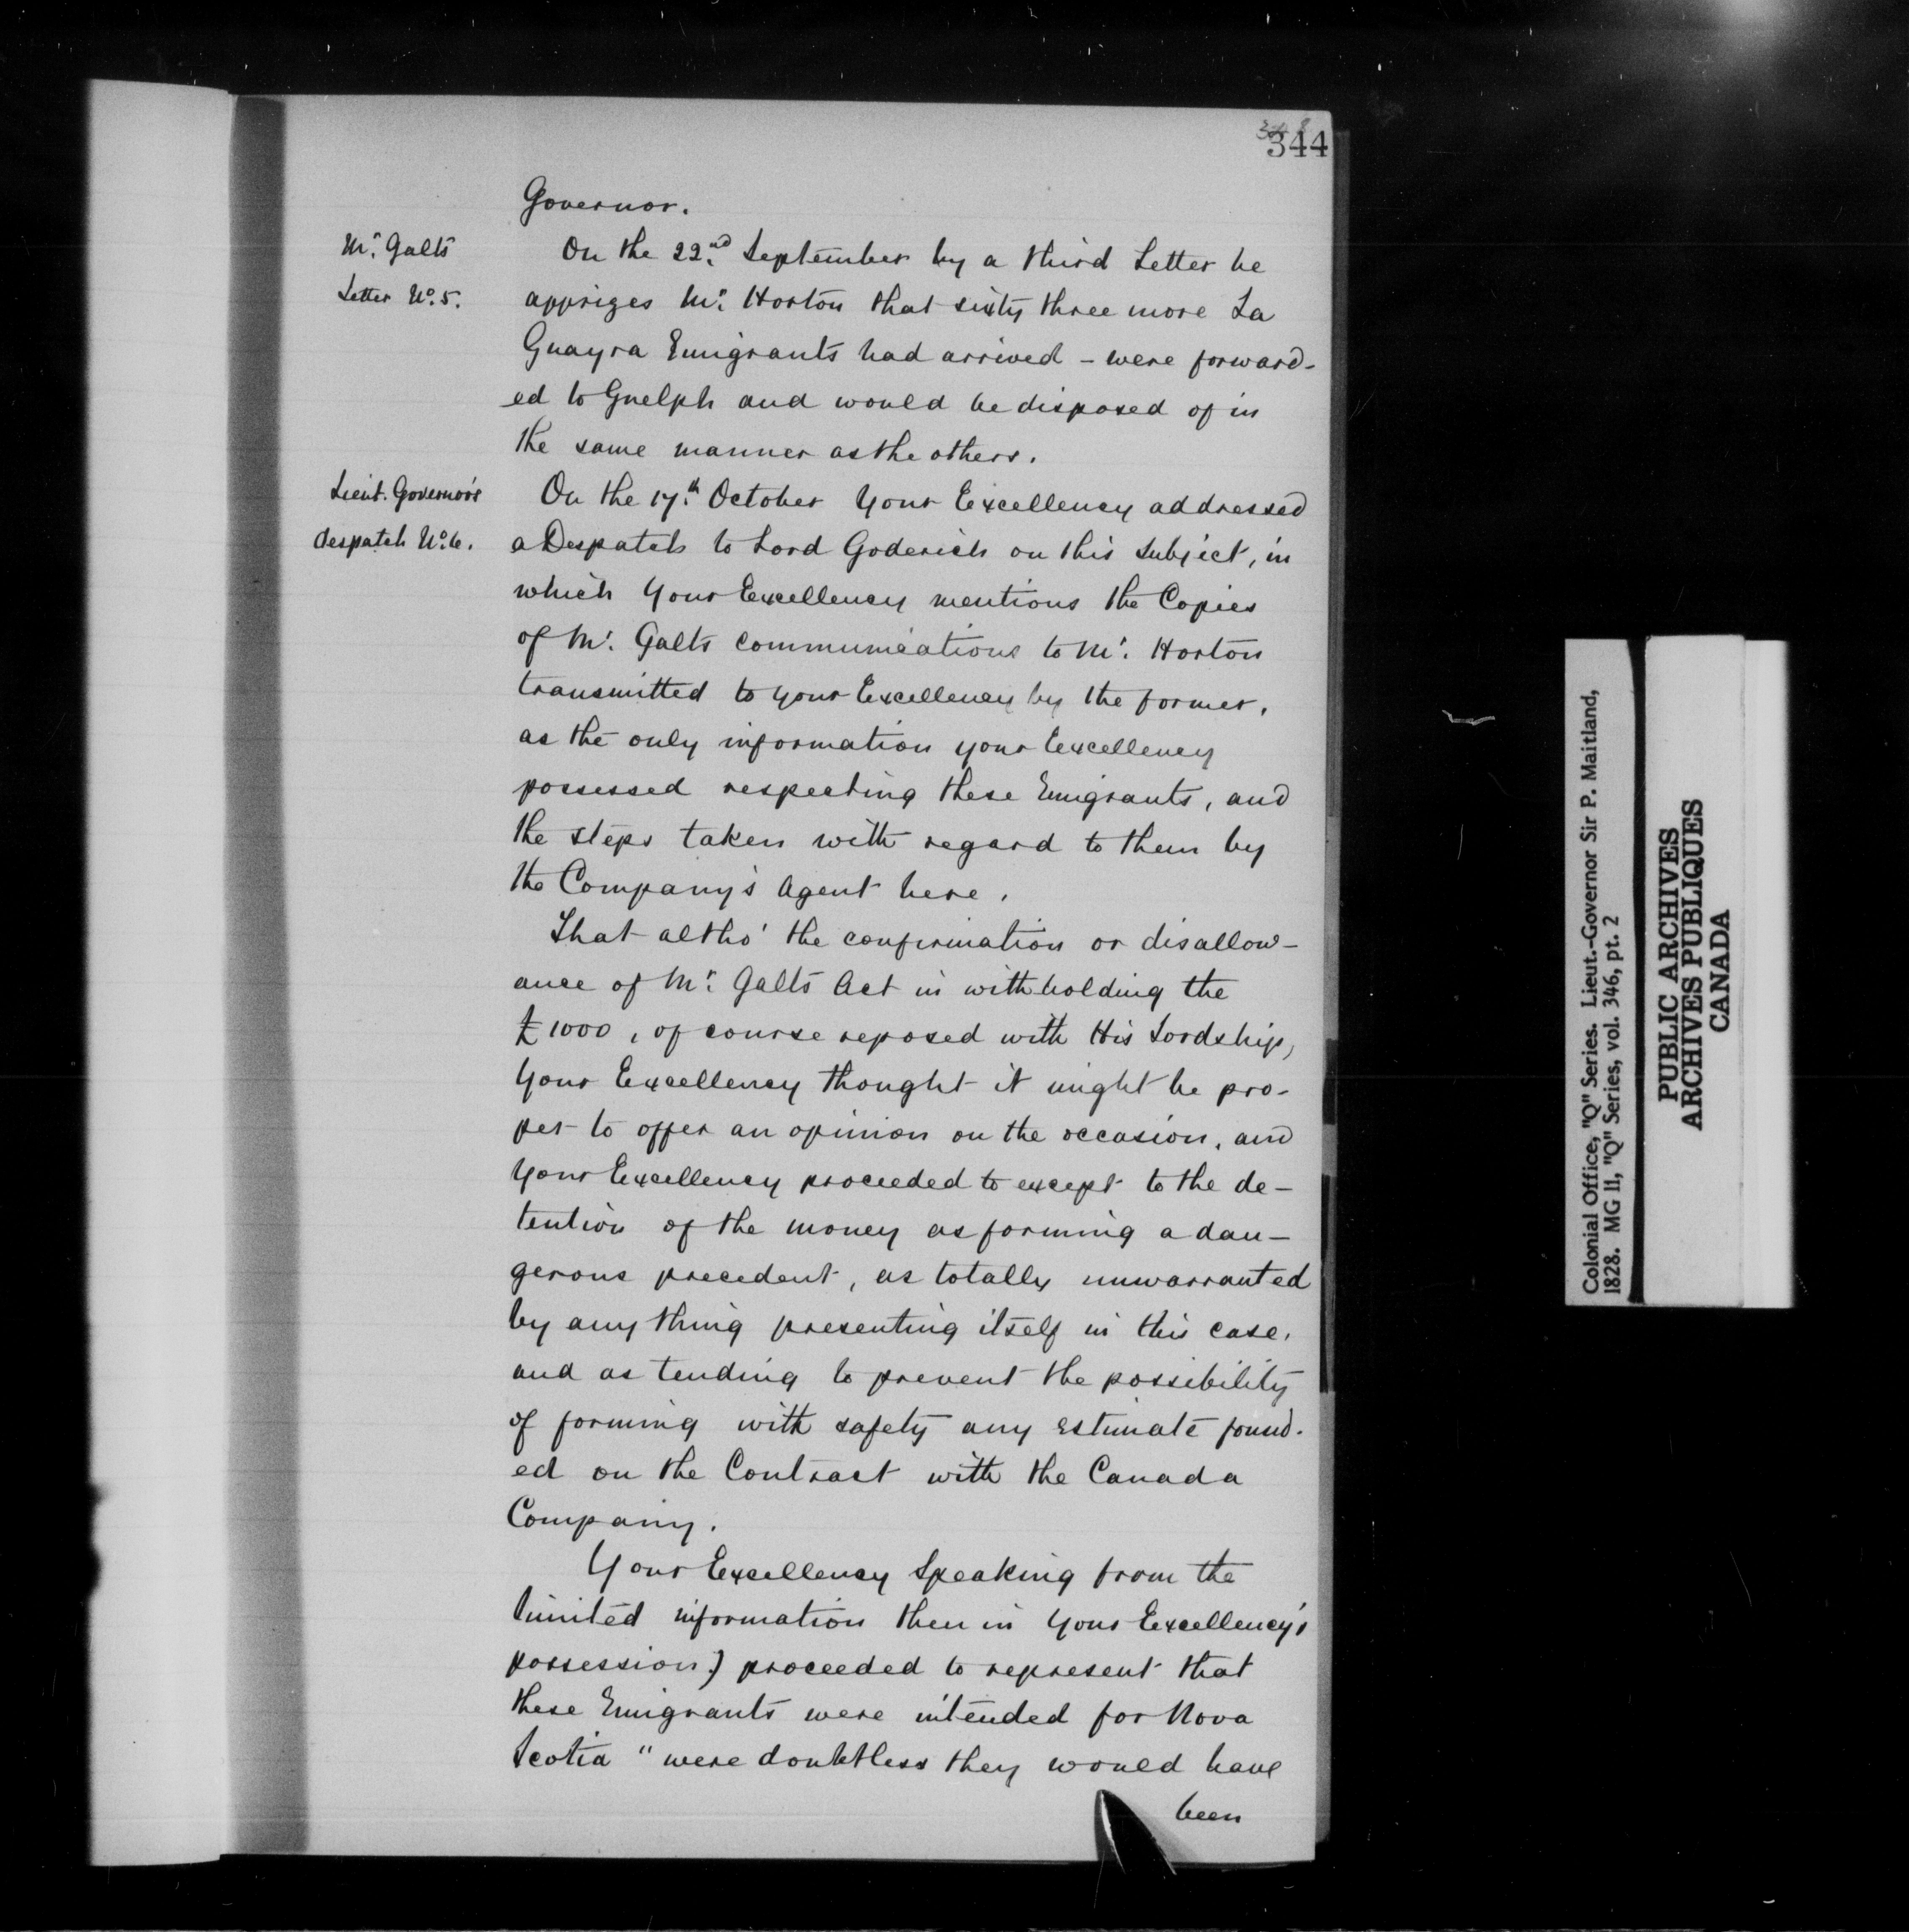 344
Governor.
Mr. Galts
Letter No. 5.
On the 22nd. September by a third Letter he
apprizes Mr. Horton that sixty three more La
Guayra Emigrants had arrived - were forward-
ed to Guelph and would be disposed of in
the same manner as the others.
Lieut. Governor's
despatch No. 6.
On the 17th. October Your Excellency addressed
a Despatch to Lord Goderich on this subject, in
which Your Excellency mentions the Copies
of Mr. Galts communications to Mr. Horton
transmitted to your Excellency by the former,
as the only information your Excellency
possessed respecting these Emigrants, and
the steps taken with regard to them by
the Company's Agent here.
That altho' the confirmation or disallow-
ance of Mr. Galts Act in withholding the
£1000, of course reposed with His Lordship,
Your Excellency thought it might be pro-
per to offer an opinion on the occasion, and
Your Excellency proceeded to except to the de-
tention of the money as forming a dan-
gerous precedent, as totally unwarranted
by any thing presenting itself in this case,
and as tending to prevent the possibility
of forming with safety any estimate found-
ed on the Contract with the Canada
Company.
Your Excellency speaking from the
limited information then in Your Excellency's
possession) proceeded to represent that
these Emigrants were intended for Nova
Scotia "were doubtless they would have
been
Colonial Office, "Q" Series. Lieut.-Governor Sir P. Maitland,
1828. MG 11, "Q" Series, vol. 346, pt. 2
PUBLIC ARCHIVES
ARCHIVES PUBLIQUES
CANADA